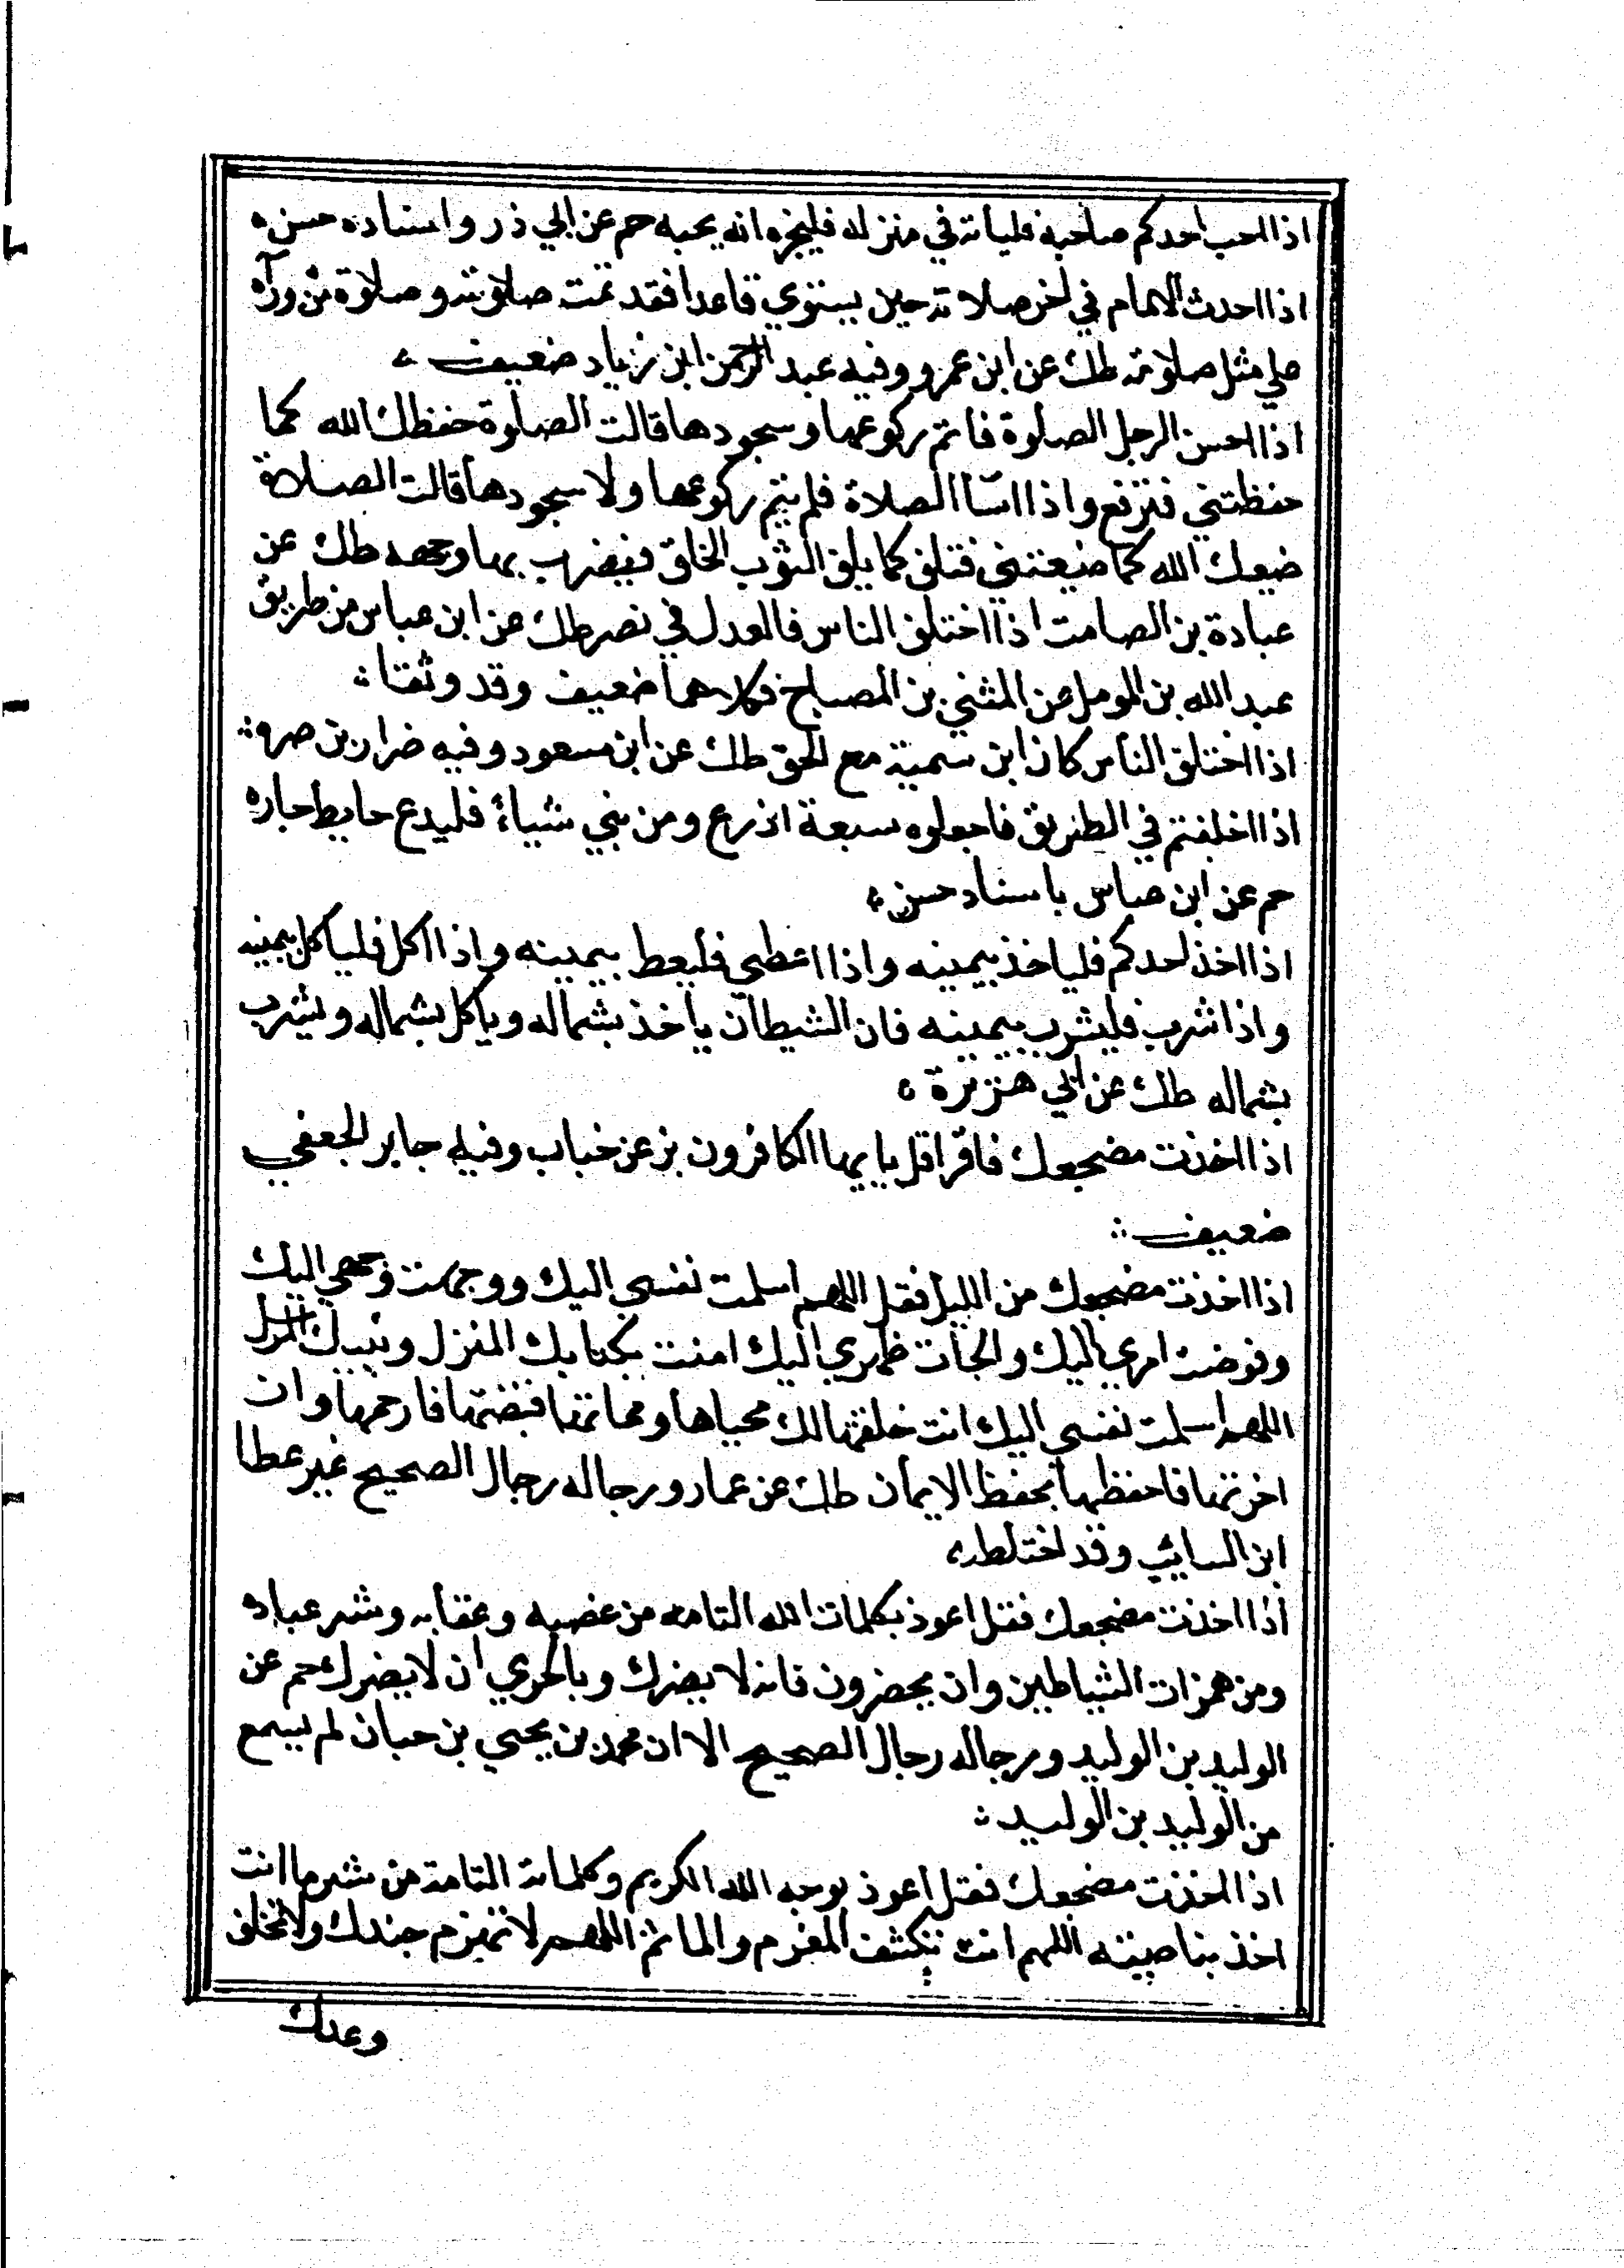 اذا احب احدكم صاحبه فلياته في منزله فليخبره انه يحبه حم عن ابي ذر واسناده حسن
اذا احدث الامام في اخر صلاته حين يستوي قاعدا فقد تمت صلاته وصلاة من ورآه
علي مثل صلاته طك عن ابن عمرو وفيه عبد الرحمن ابن زياد ضعيف
اذا احسن الرجل الصلوة فاتم ركوعها وسجودها قالت الصلوة حفظك الله كما
حفظتني فترفع واذا اسآ الصلاة فلم يتم ركوعها ولا سجودها قالت الصلاة
ضيعك الله كما ضيعتني فتلف كما يلف الثوب الخلق فيضرب بها وجهه طك عن
عبادة بن الصامت اذا اختلف الناس فالعدل في نصر طك عن ابن عباس من طريق
عبد الله بن المومل عن المثني بن المصباح فكلاهما ضعيف وقد وثقا
اذا اختلف الناس كان ابن سمية مع الحق طك عن ابن مسعود وفيه ضرار بن صرو
اذا اختلفتم في الطريق فاجعلوه سبعة اذرع ومن بني شياء فليدع حايط جاره
حم عن ابن عباس باسناد حسن
اذا اخذ احدكم فلياخذ بيمينه واذا اعطي فليعط بيمينه واذا اكل فلياكل بيمينه
واذا شرب فليشرب بيمينه فان الشيطان ياخذ بشماله وياكل بشماله ويشرب
بشماله طك عن ابي هريرة
اذا اخذت مضجعك فاقرا قل يا يها الكافرون بز عن خباب وفيه جابر الجعفي
ضعيف
اذا اخذت مضجعك من الليل فقل اللهم اسلمت نفسي اليك ووجهت وجهي اليك
وفوضت امري اليك والجات ظهري اليك امنت بكتابك المنزل ونبيك المرسل
اللهم اسلمت نفسي اليك انت خلقتها لك محياها ومماتها قبضتها فارحمها وان
اخرتها فاحفظها بحفظ الايمان طك عن عمار ورجاله رجال الصحيح غير عطا
ابن السايب وقد اختلط
اذا اخذت مضجعك فقل اعوذ بكلمات الله التامه من غضبه وعقابه وشر عباده
ومن همزات الشياطين وان يحضرون فانه لا يضرك وبالحري ان لا يضرك حم عن
الوليد بن الوليد ورجاله رجال الصحيح الا ان محمد بن يحيي بن حبان لم يسمع
من الوليد بن الوليد
اذا اخذت مضجعك فقل اعوذ بوجه الله الكريم وكلماته التامة من شر ما انت
اخذ بناصيته اللهم انت تكشف المغرم والماثم اللهم لا تهزم جندك ولا تخلف
وعدك